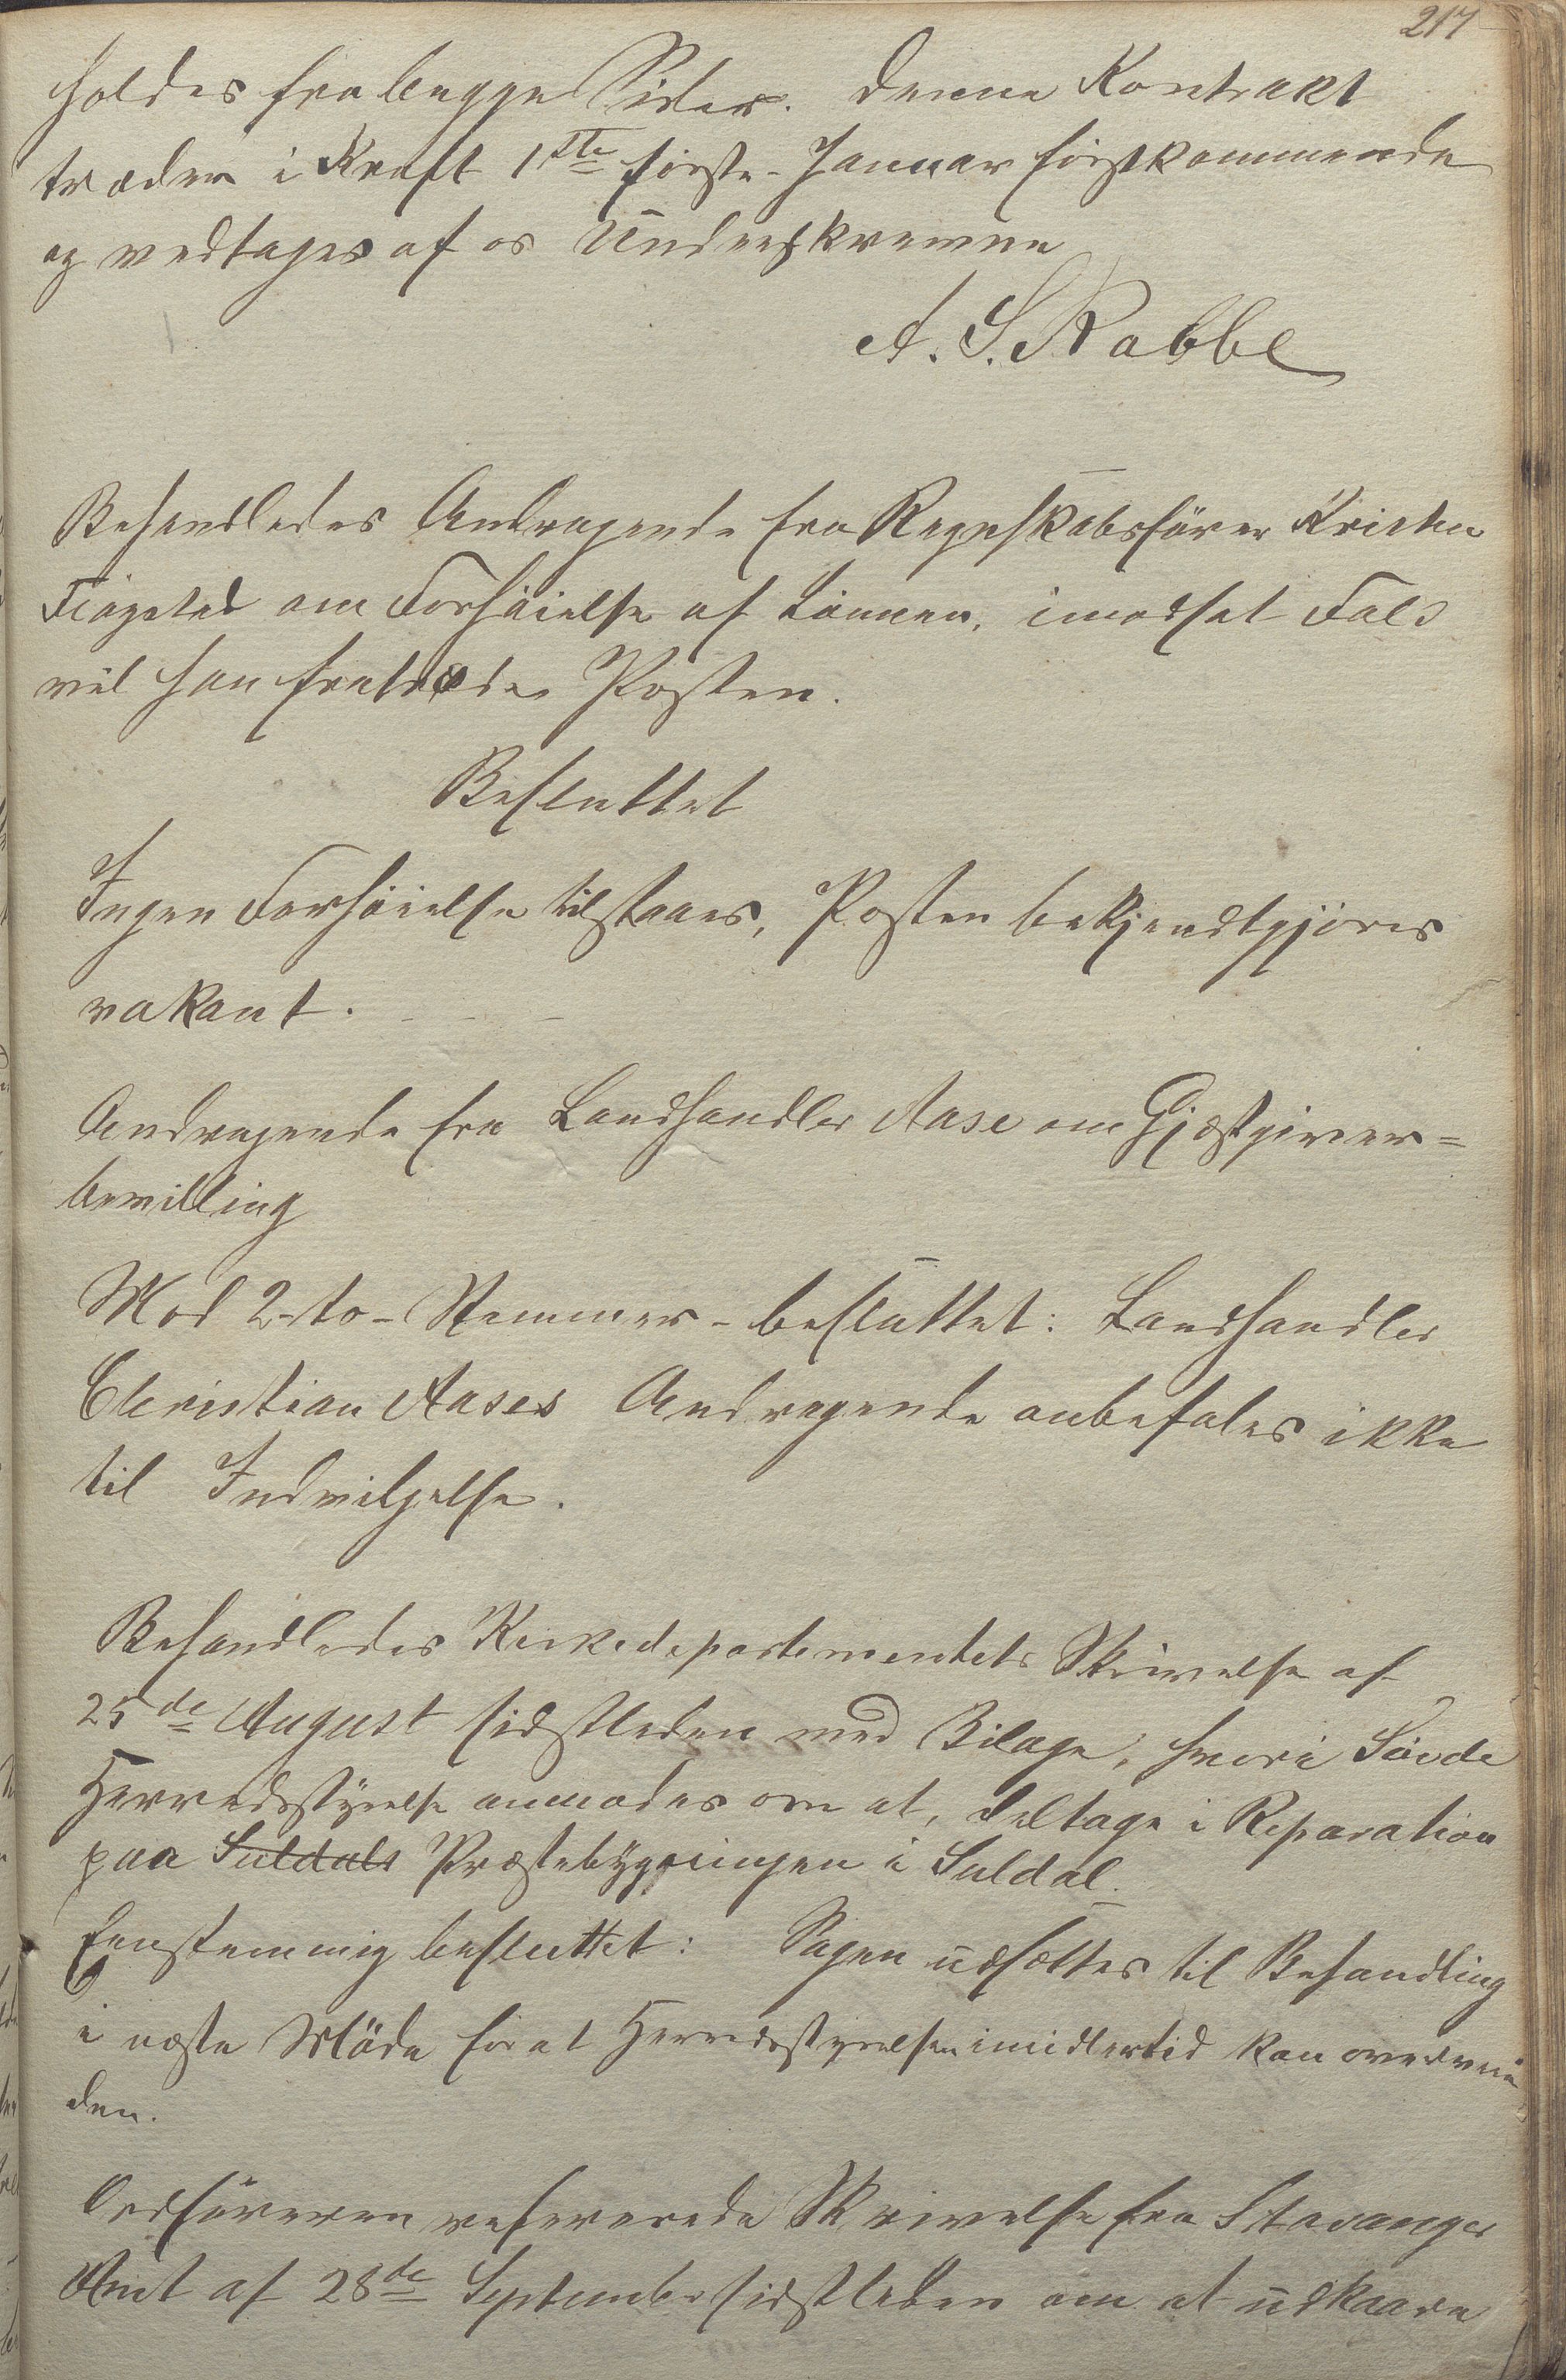 217
holdes fra begge Sider. Denne Kontrakt
træder i Kraft 1ste første Januar førstkommende
og vedtages af os Underskrevne
A. S. Rabbe
Behandledes Andragende fra Regnskabsfører Kristen
om Forhöielse af Lönnen, imodsat Fald
vil han fratræde Posten.
Besluttet
Ingen Forhöielse tilstaaes, Posten bekjendtgjöres
vakant.
Andragende fra Landhandler Aase om Gjæstgiver=
bevilling
Mod 2-to-Stemmer-besluttet: Landhandler
Christian Aases Andragende anbefales ikke
til Indvilgelse.
Behandledes Kirkedepartementets Skrivelse af
25de August sidstleden med Bilage, hvori Søvde
Herredsstyrelse anmodes om at, deltage i Reparation
paa Suldals Præstebygningen i Suldal.
Eenstemmig besluttet: Sagen udsættes til Behandling
i næste Möde for at Herredsstyrelsen imidlertid kan overveie
den.
Ordföreren refererede Skrivelse fra Stavanger
Amt af 28de September sidstleden om at udkaare